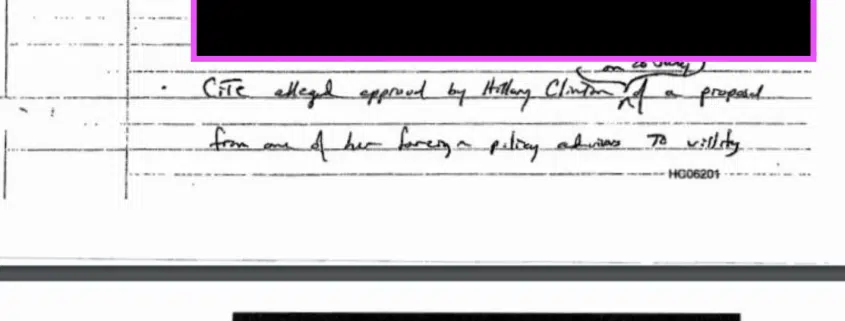 on 28 July
• CITE alleged approval by Hillary Clinton of a proposal
from one of her foreign policy advisors to villify
HG06201